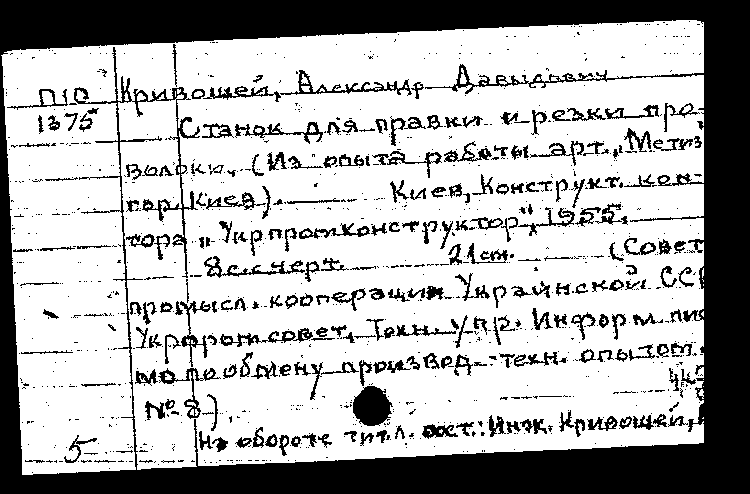 П10 Кривошей, Александр Давыдович
1375 Станок для правки и резки про-
волоки. (Из опыта работы арт. „Метиз"
гор. Киев). Киев, Конструкт. кон-
тора „Укрпромконструктор", 1955.
8 с. с черт. 21 см. (Совет
промысл. кооперации Украинской ССР
Укрпромсовет, Техн. упр. Информ. пись
мо по обмену производ.-техн. опытом.
№ 8).
5 На обороте титл. сост.: Инж. Кривошей,